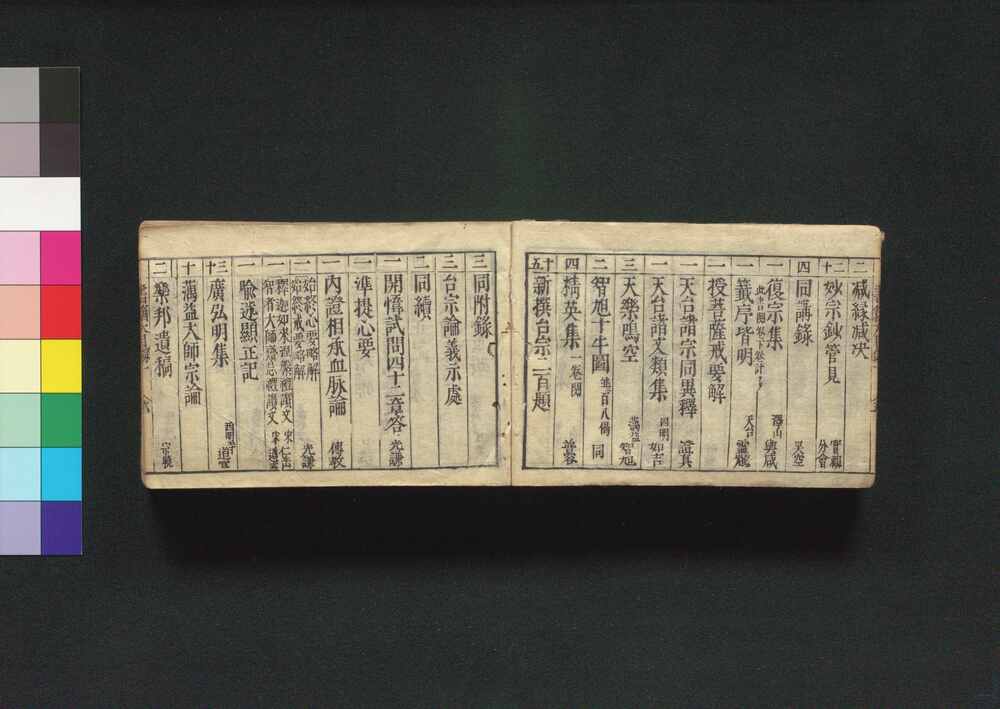 二 減緣減決
二十 妙宗鈔管見 實觀 分會
四 同講錄 癡空
一 復宗集 與咸
一 籤序皆明 天台 靈耀
一 授菩薩戒要解
一 天台諸宗同異釋 證真
一 天台諸文類集 四明 如吉
三 天樂鳴空 藕益 智旭
二 智旭十牛圖 百八偈 同
四 精英集 一卷闕
十五 新撰台宗二百題
三 同附錄
三 台宗論義示處
二 同續
一 開惛試問四十二章答 光謙
一 準提心要
一 內證相承血脉論 傳教
一 始終心要略解 始終戒要略解 光謙
一 釋迦如來涅槃禮讚文 宋仁岳
一 智者大師齋忌禮讚文 宋遵式
一 喻迷顯正記
三十 廣弘明集 西明寺 道宣
十 藕益大師宗論
二 樂邦遺稿 宗曉